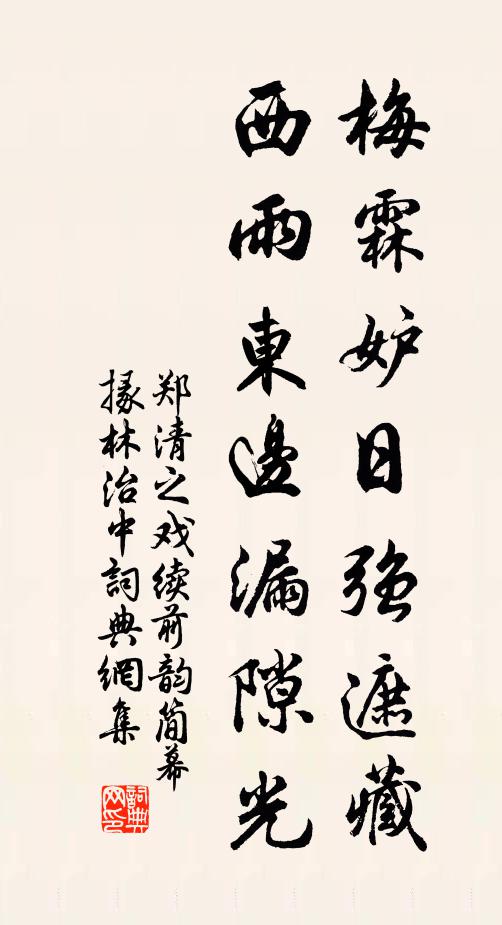 梅霖妒日强遮藏
西雨東邊漏隙光
郑清之戏续前韵简幕
掾林治中詞典網集
詞典网印